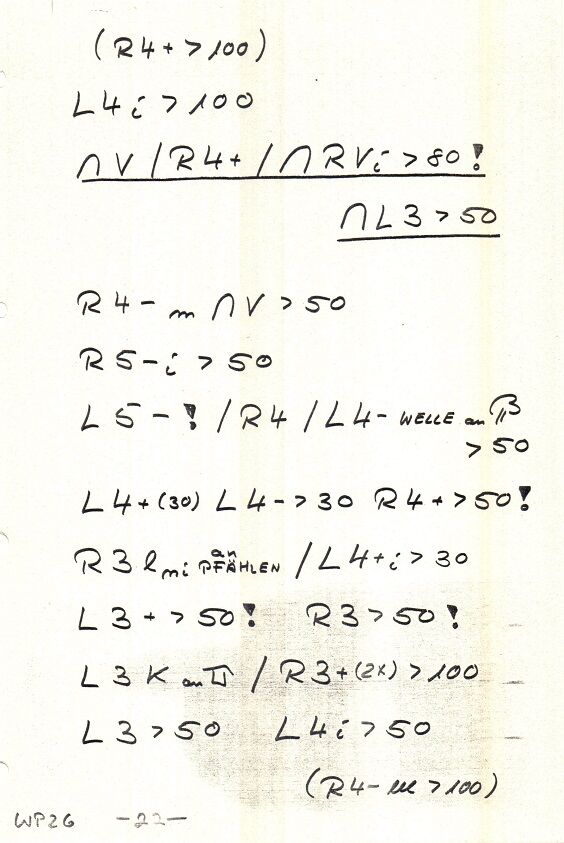 (R4+>100)
L4i>100
∩V/R4+/∩RVi>80!
∩L3>50
R4- m ∩V>50
R5-i>50
L5-!/R4/L4- WELLE an
>50
L4+(30) L4->30 R4+>50!
R3 l mi an PFÄHLEN/L4+i>30
L3+>50! R3>50!
L3 K an /R3+(2x)>100
L3>50 L4i>50
(R4- >100)
WP26 -22-